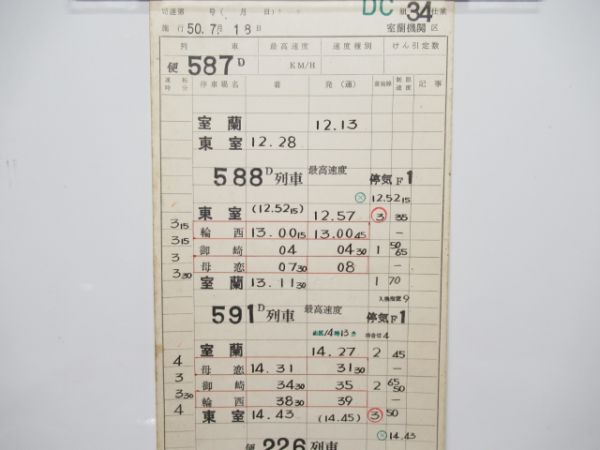 司達第 号( 月 日) DC 組 34 仕業
施行 50.7月18日 室蘭機関区
列車 最高速度 速度種別 けん引定数
便 587D KM/H
運転時分 停車場名 着 発(通) 着発線 制限速度 記事
室蘭 12.13
東室 12.28
588D列車 最高速度 停気F1
12.5215
東室 (12.5215) 12.57 3 35
315 輪西 13.0015 13.0045 —
315 御崎 04 0430 1 50 65
3 母恋 0730 08 —
330 室蘭 13.1130 1 70
9
591D列車 最高速度 停気F1
14時13分 4
室蘭 14.27 2 45
4 母恋 14.31 3130 —
3 御崎 3430 35 2 65 50
330 輪西 3830 39 —
4 東室 14.43 (14.45) 3 50
14.43
便 226列車